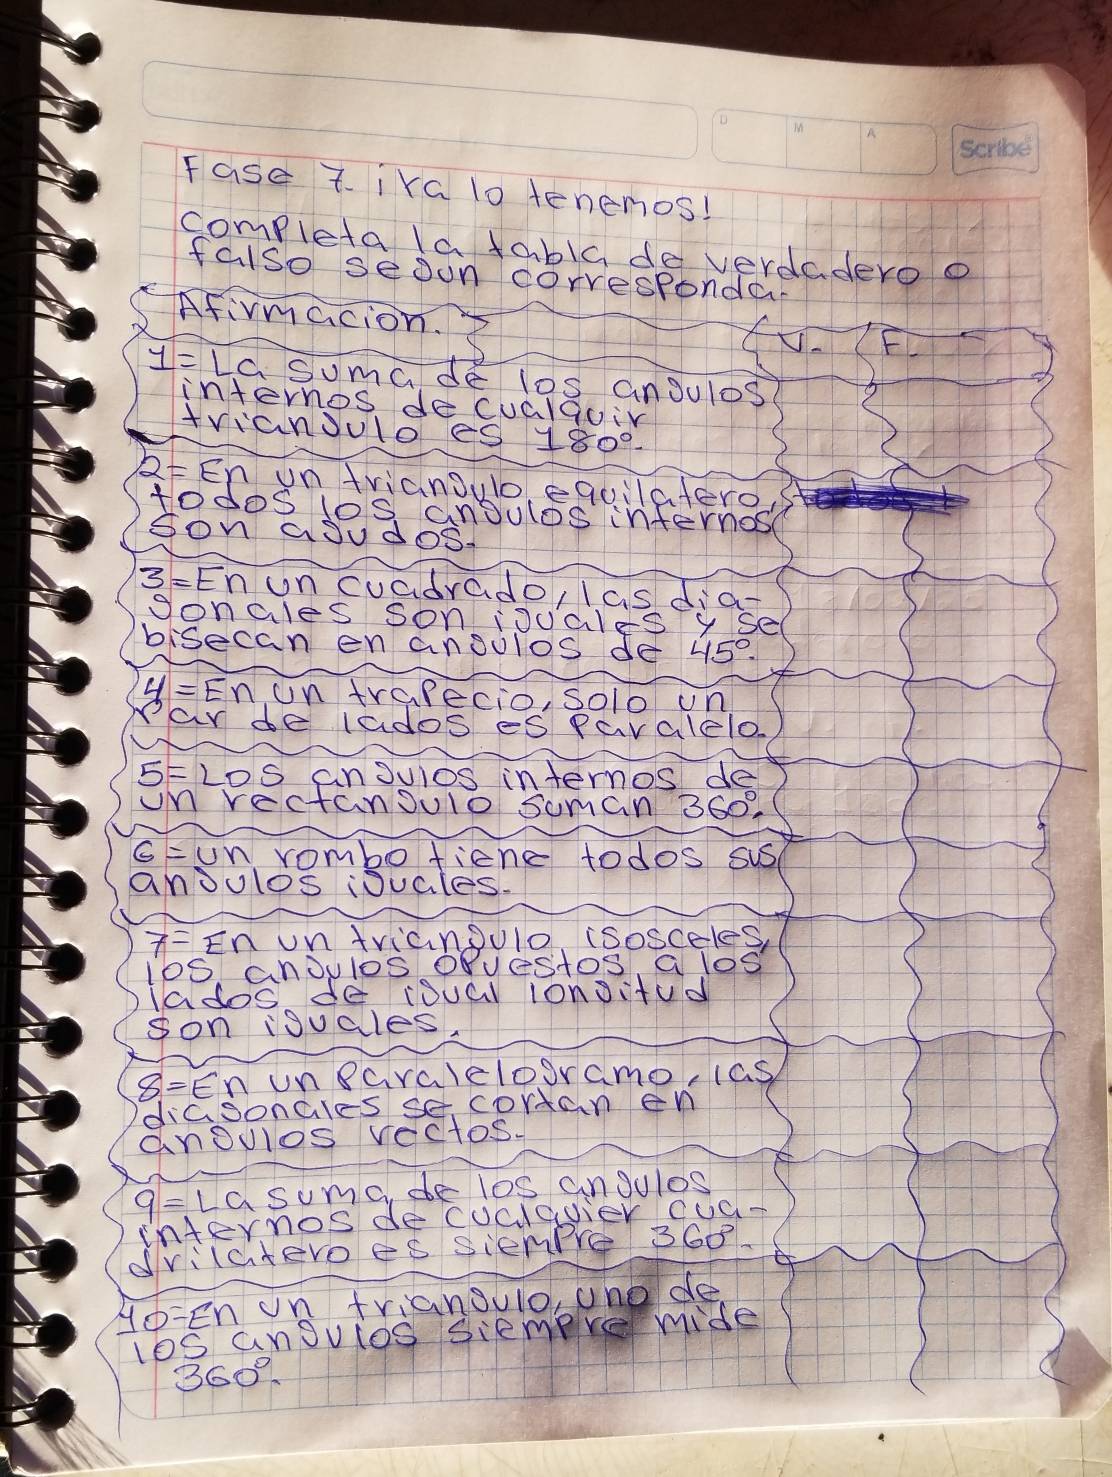 D M A
Scribe
Fase 7. ¡ya lo tenemos!
completa la tabla de verdadero o
falso segun corresponda.
Afirmacion. V. F.
1=La suma de los angulos
internos de cualquir
triangulo es 180°.
2=En un triangulo equilatero,
todos los angulos internos
son agudos.
3=En un cuadrado, las dia-
gonales son iguales y se
bisecan en angulos de 45°.
4=En un trapecio, solo un
par de lados es paralelo.
5=Los angulos internos de
un rectangulo suman 360°.
6=un rombo tiene todos sus
angulos iguales.
7=En un triangulo isosceles,
los angulos opuestos a los
lados de igual longitud
son iguales.
8=En un paralelogramo, las
diagonales se cortan en
angulos rectos.
9=La suma de los angulos
internos de cualquier cua-
drilatero es siempre 360°.
10=En un triangulo, uno de
los angulos siempre mide
360°.